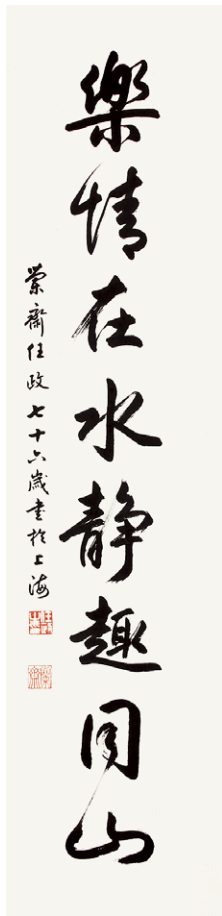 樂情在水静趣同山
蘭齋任政七十六歲書於上海